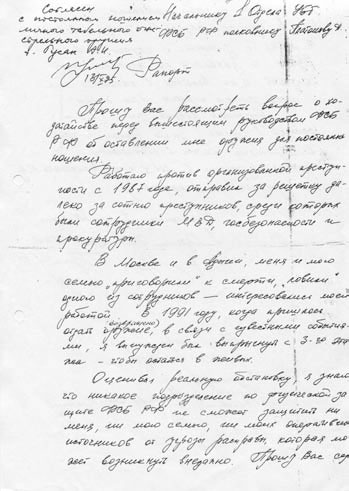 Согласен
с постоянным ношением
личного табельного
стрелкового оружия
г. Гусак А.И.
Начальнику 1 Отдела УБТ
ФСБ РФ полковнику Платонову
Рапорт
Прошу Вас рассмотреть вопрос о хо-
датайстве перед вышестоящим руководством ФСБ
РФ об оставлении мне оружия для постоянного
ношения.
Работаю против организованной преступ-
ности с 1987 года, отправил за решетку да-
леко за сотню преступников, среди которых
были сотрудники МВД, госбезопасности и
прокуратуры.
В Москве и в меня и мою
семью „приговорили" к смерти, „ловили"
одного из сотрудников — интересовались моей
работой. В 1991 году, когда пришлось
сдать оружие, в связи с известными события-
ми, я вынужден был выпрыгнуть с 3-го эта-
жа — чтобы остаться в живых.
Оценивая реальную обстановку, я знаю
что никакое подразделение по физической за-
щите ФСБ РФ не сможет защитить ни
меня, ни мою семью, ни моих оперативных
источников от угрозы расправы, которая мо-
жет возникнуть внезапно. Прошу Вас